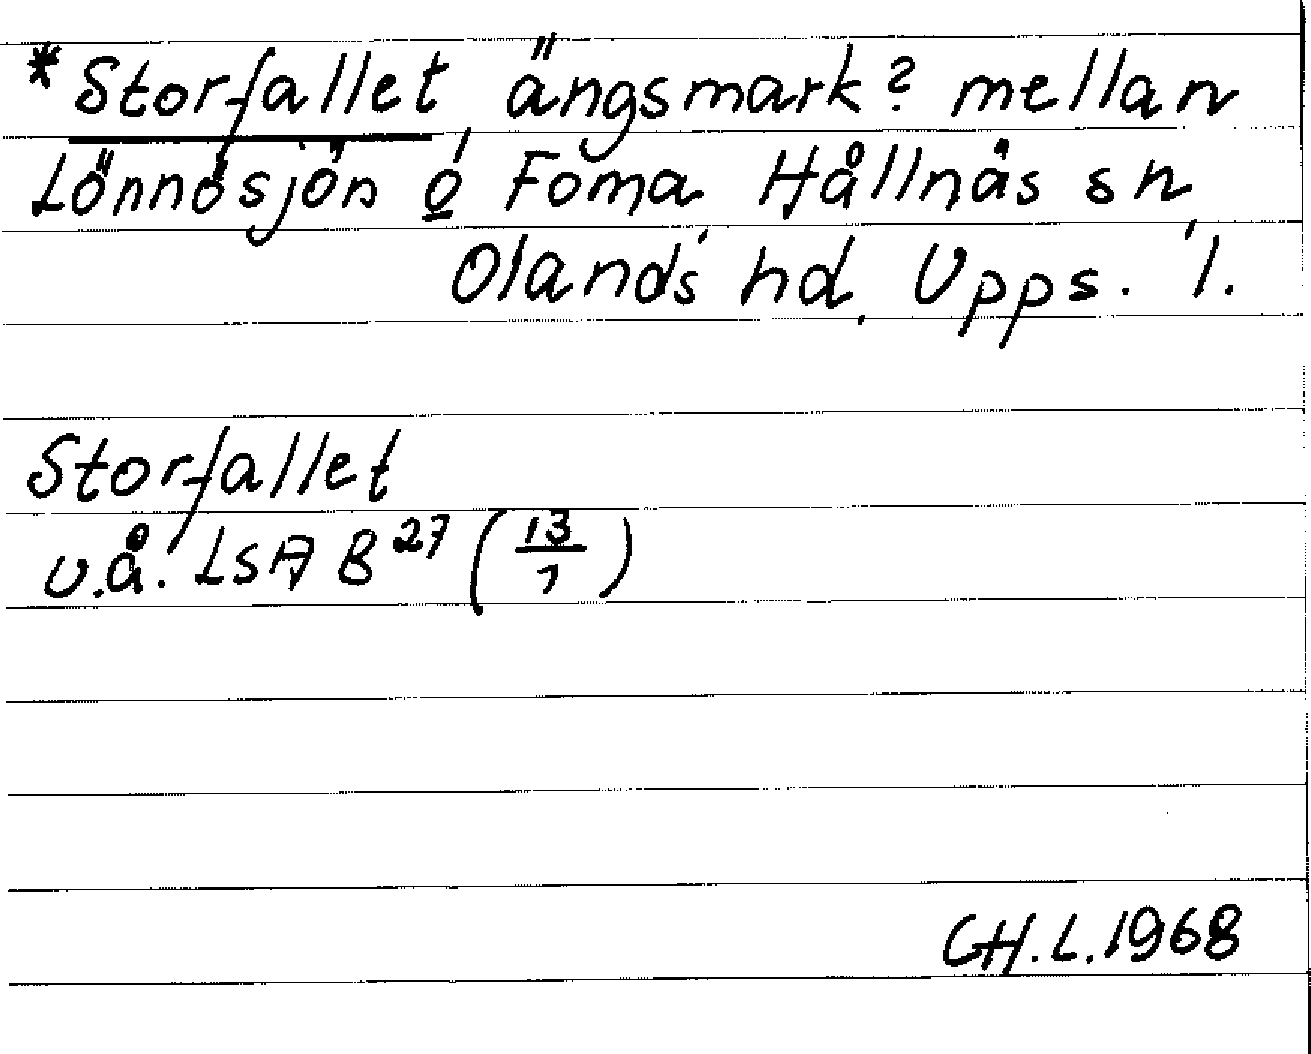 *Storfallet, ängsmark? mellan
Lönnösjön o Foma, Hållnäs sn,
Olands hd, Upps. l.
Storfallet
u.å. LSA B 27 (13/1)
CH.L.1968